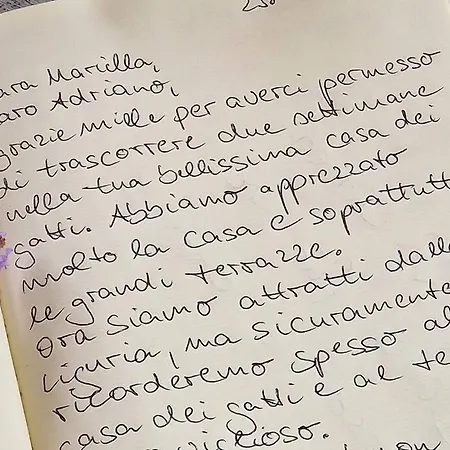 ara Maricilla,
aro Adriano,
grazie mille per averci permesso
di trascorrere due settimane
nella tua bellissima casa dei
gatti. Abbiamo apprezzato
molto la casa e soprattutt
le grandi terrazze.
Ora siamo attratti dalla
Liguria, ma sicuramente
ricorderemo spesso al
casa dei gatti e al te
viglioso.